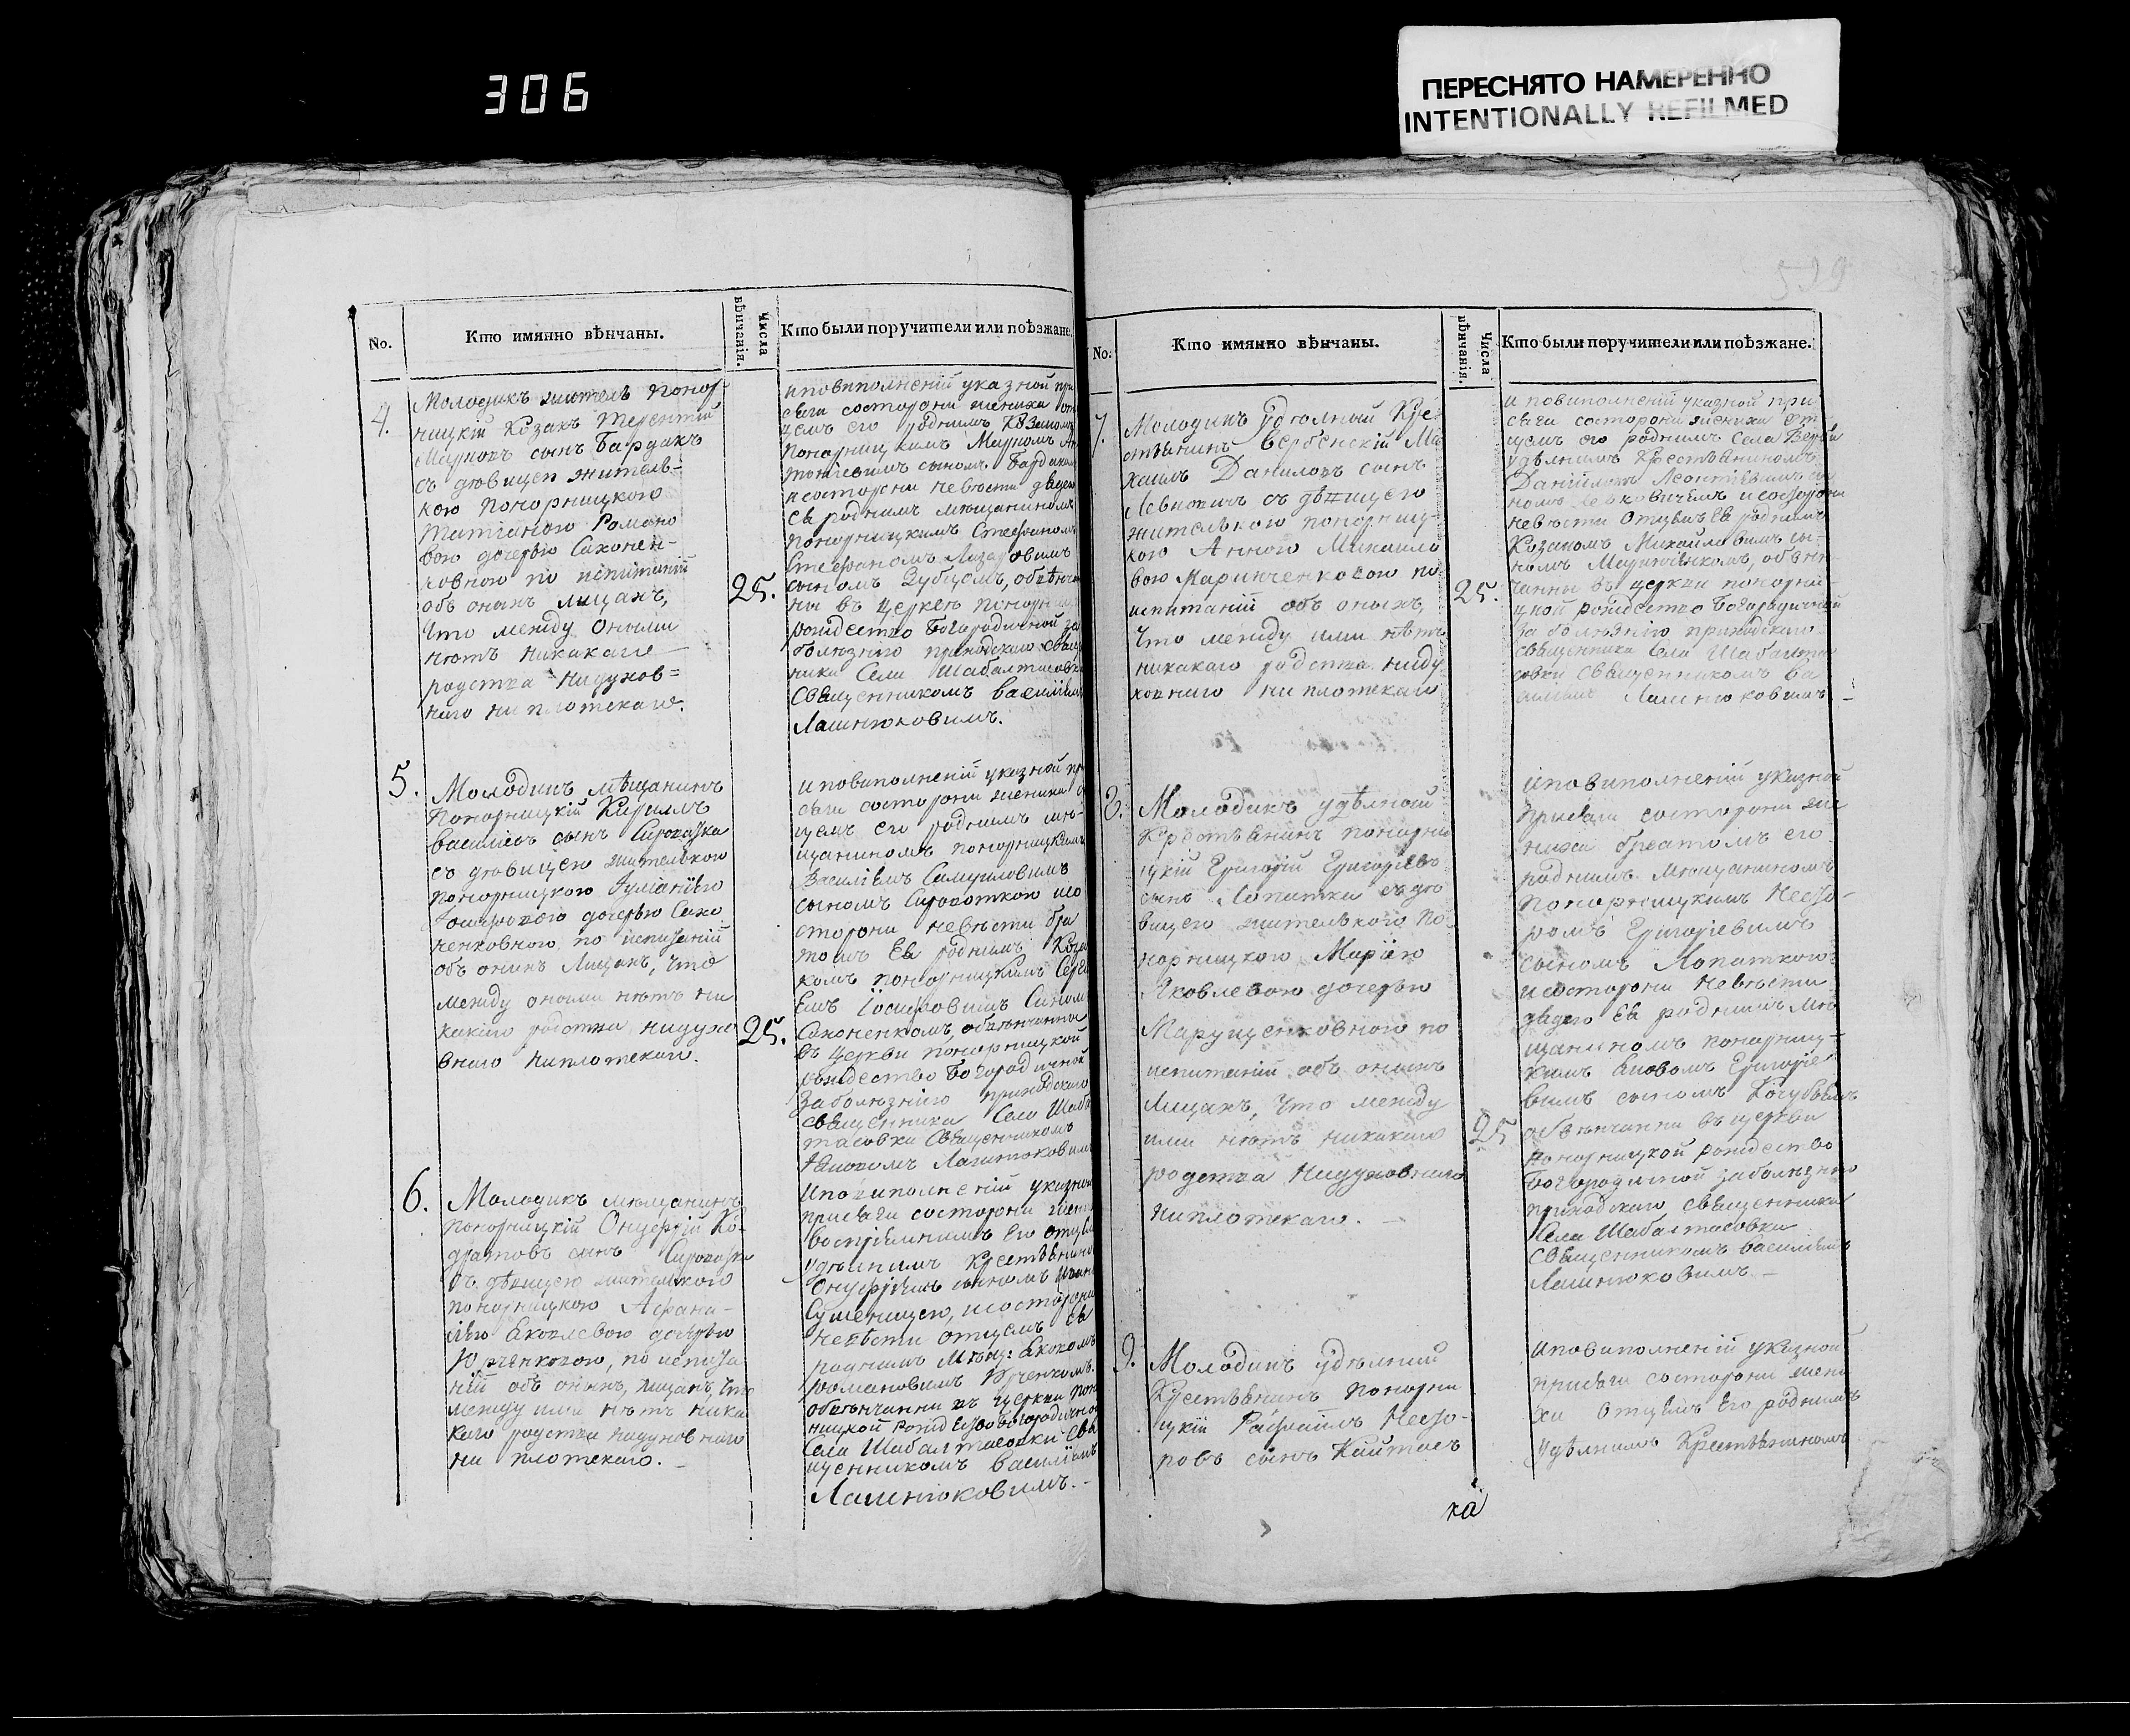 306
ПЕРЕСНЯТО НАМЕРЕННО
INTENTIONALLY REFILMED
No.
Кто имянно вѣнчаны.
Числа вѣнчанія.
Кто были поручители или поѣзжане.
4.
Молодикъ жители Понор
ницкій Козакъ Терентій
Марковъ сынъ Бардакъ
съ дѣвицею житель-
кою Понорницкою
Татіаною Романо
вою дочерью Сахонен-
ковною по испитаній
объ онихъ лицахъ,
что между оними
нѣтъ никакаго
родства нидухов=
наго ни плотскаго.
25.
и повиполненій указной при
сяги состорони жениха от
цемъ его роднимъ Козакомъ
Понорницкимъ Маркомъ
сыномъ Бардакомъ
и состорони невѣсти дядею
Ея роднимъ мѣщаниномъ
Понорницкимъ Стефаномъ
Стефаномъ Лазаровимъ
сыномъ Зубцомъ, обвѣнча
ни въ Церквѣ Понорниц
рождество Богородичной за
болѣзнію приходскаго свящ
ника Села Шабалтасовки
Священникомъ Василіемъ
Лашнюковимъ.
5.
Молодикъ мѣщанинъ
Понорницкій Кирилъ
Василіевъ сынъ Сиротка
съ дѣвицею жителькою
Понорницкою Іуліаніею
Іосифовою дочерью Сахо
ненковною по испитаній
объ онихъ Лицахъ, что
между оними нѣтъ ни
какого родства нидухо
внаго ниплотскаго.
25.
и повиполненій указной пр
сяги состорони жениха о
цемъ его роднимъ мѣ-
щаниномъ Понорницкимъ
Василіемъ Самуиловимъ
сыномъ Сироткою исо
сторони невѣсти бра
томъ Ея роднимъ Коза
комъ Понорницкимъ Серге
емъ Іосифовимъ Сином
Сахоненкомъ, обвѣнчанна
въ Церкви Понорницкой
рождество Богородичной
за болѣзнію приходского
священника Села Шаб
тасовки Священникомъ
Лашнюковим
6.
Молодикъ мѣщанинъ
Понорницкій Онуфрій Ко-
дратовъ синъ Сиротка
съ дѣвицею жителькою
Понорницкою Афана-
сіею Яковлевою дочерью
Юрченковою, по испита
ній объ онихъ, лицахъ, что
между ими нѣтъ ника
каго родства нидуховнаго
ни плотскаго.
Иповиполненій указной
присяги состорони жених
воспріемнимъ Его отцем
удѣлнимъ Крестяниномъ
Онуфріемъ синомъ
Сушеницею, исосторони
невѣсти отцемъ Ея
роднимъ Мѣщ: Яковомъ
Романовимъ Юрченкомъ.
обвѣнчанни въ Церкви Пон
ницкой рождество богородичной
Села Шабалтасовки Свя
щенникомъ Василіемъ
Лашнюковимъ.
No.
Кто имянно вѣнчаны.
Числа вѣнчанія.
Кто были поручители или поѣзжане.
7.
Молодикъ Удѣлный Кре
стянинъ Вербенскій Ми
хаилъ Даниловъ синъ
съ дѣвицею
жителькою понорниц-
кою Анною Михайло
вою Маринченковою по
испитаній объ онихъ,
что между ими нѣтъ
никакаго родства ниду
ховнаго ни плотскаго
25.
и повиполненій указной при
сяги состорони жениха от
цемъ его роднимъ Села Верби
удѣлнимъ Крестяниномъ
Даніиломъ Леонтіевимъ си
номъ исостороны
невѣсти Отцемъ Ея роднимъ
Козакомъ Михайловимъ си-
номъ Маринченкомъ, обвѣн-
чанны въ церкви понорни-
цкой рождество Богородичной
за болѣзнію приходскаго
священника села Шабалта
совки Священникомъ Ва
силіемъ Лашнюковимъ
8.
Молодикъ удѣлной
Крестянинъ понорни
цкій Григорій Григоріевъ
синъ Лопатка съ дѣ
вицею жителькою По-
норницкою Маріею
Яковлевою дочерью
Марущенковною по
испитаній объ онихъ
Лицахъ, что между
ими нѣтъ никакаго
родства нидуховнаго
ниплотскаго.
25
иповиполненій указной
присяги состорони же
ниха братомъ его
роднимъ мѣщаниномъ
Понорницкимъ Несто-
ромъ Григоріевимъ
сыномъ Лопаткою
исосторони невѣсти
дядею Ея роднимъ Мѣ
щаниномъ понорниц-
кимъ Яковомъ Григоріе
вимъ сыномъ Кочубѣемъ
обвѣнчанни въ церкви
понорницкой рождество
Богородичной за болѣзнію
приходскаго священника
села Шабалтасовки
Священникомъ Василіемъ
Лашнюковимъ
9.
Молодикъ удѣлний
Крестянинъ Понорни
цкій Рафаилъ Несто-
ровъ сынъ Кайтас
ка
иповиполненій указной
присяги состорони жени
ха отцемъ Его роднимъ
Удѣлнимъ Крестяниномъ